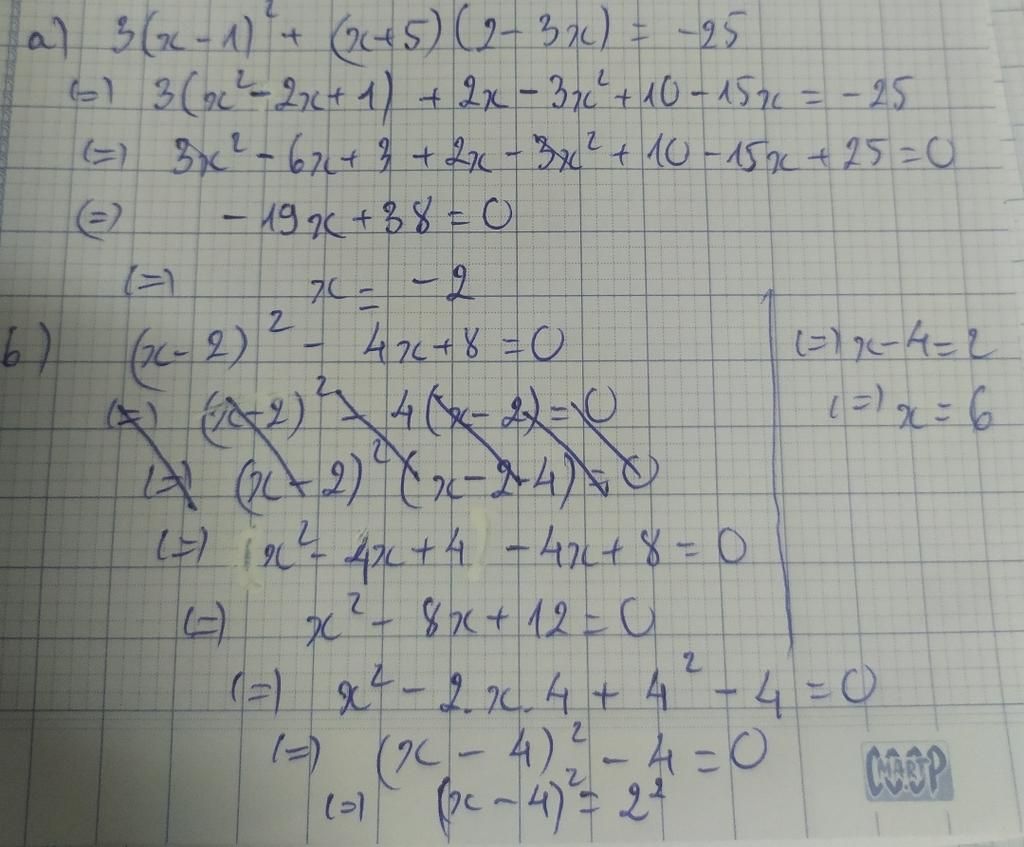 a) 3(x-1)² + (x+5)(2-3x) = -25
(=) 3(x²-2x+1) + 2x-3x²+10-15x = -25
(=) 3x²-6x+3+2x-3x²+10-15x+25=0
(=) -19x+38=0
(=) x = -2
b) (x-2)² - 4x+8=0
(=) (x-2)² - 4(x-2)=0
(=) (x-2)²(x-2-4)=0
(=) (x²-4x+4) -4x+8=0
(=) x²-8x+12=0
(=) x²-2.x.4+4²-4=0
(=) (x-4)²-4=0
(=) (x-4)²=2²
(=) x-4=2
(=) x=6
SMARTP